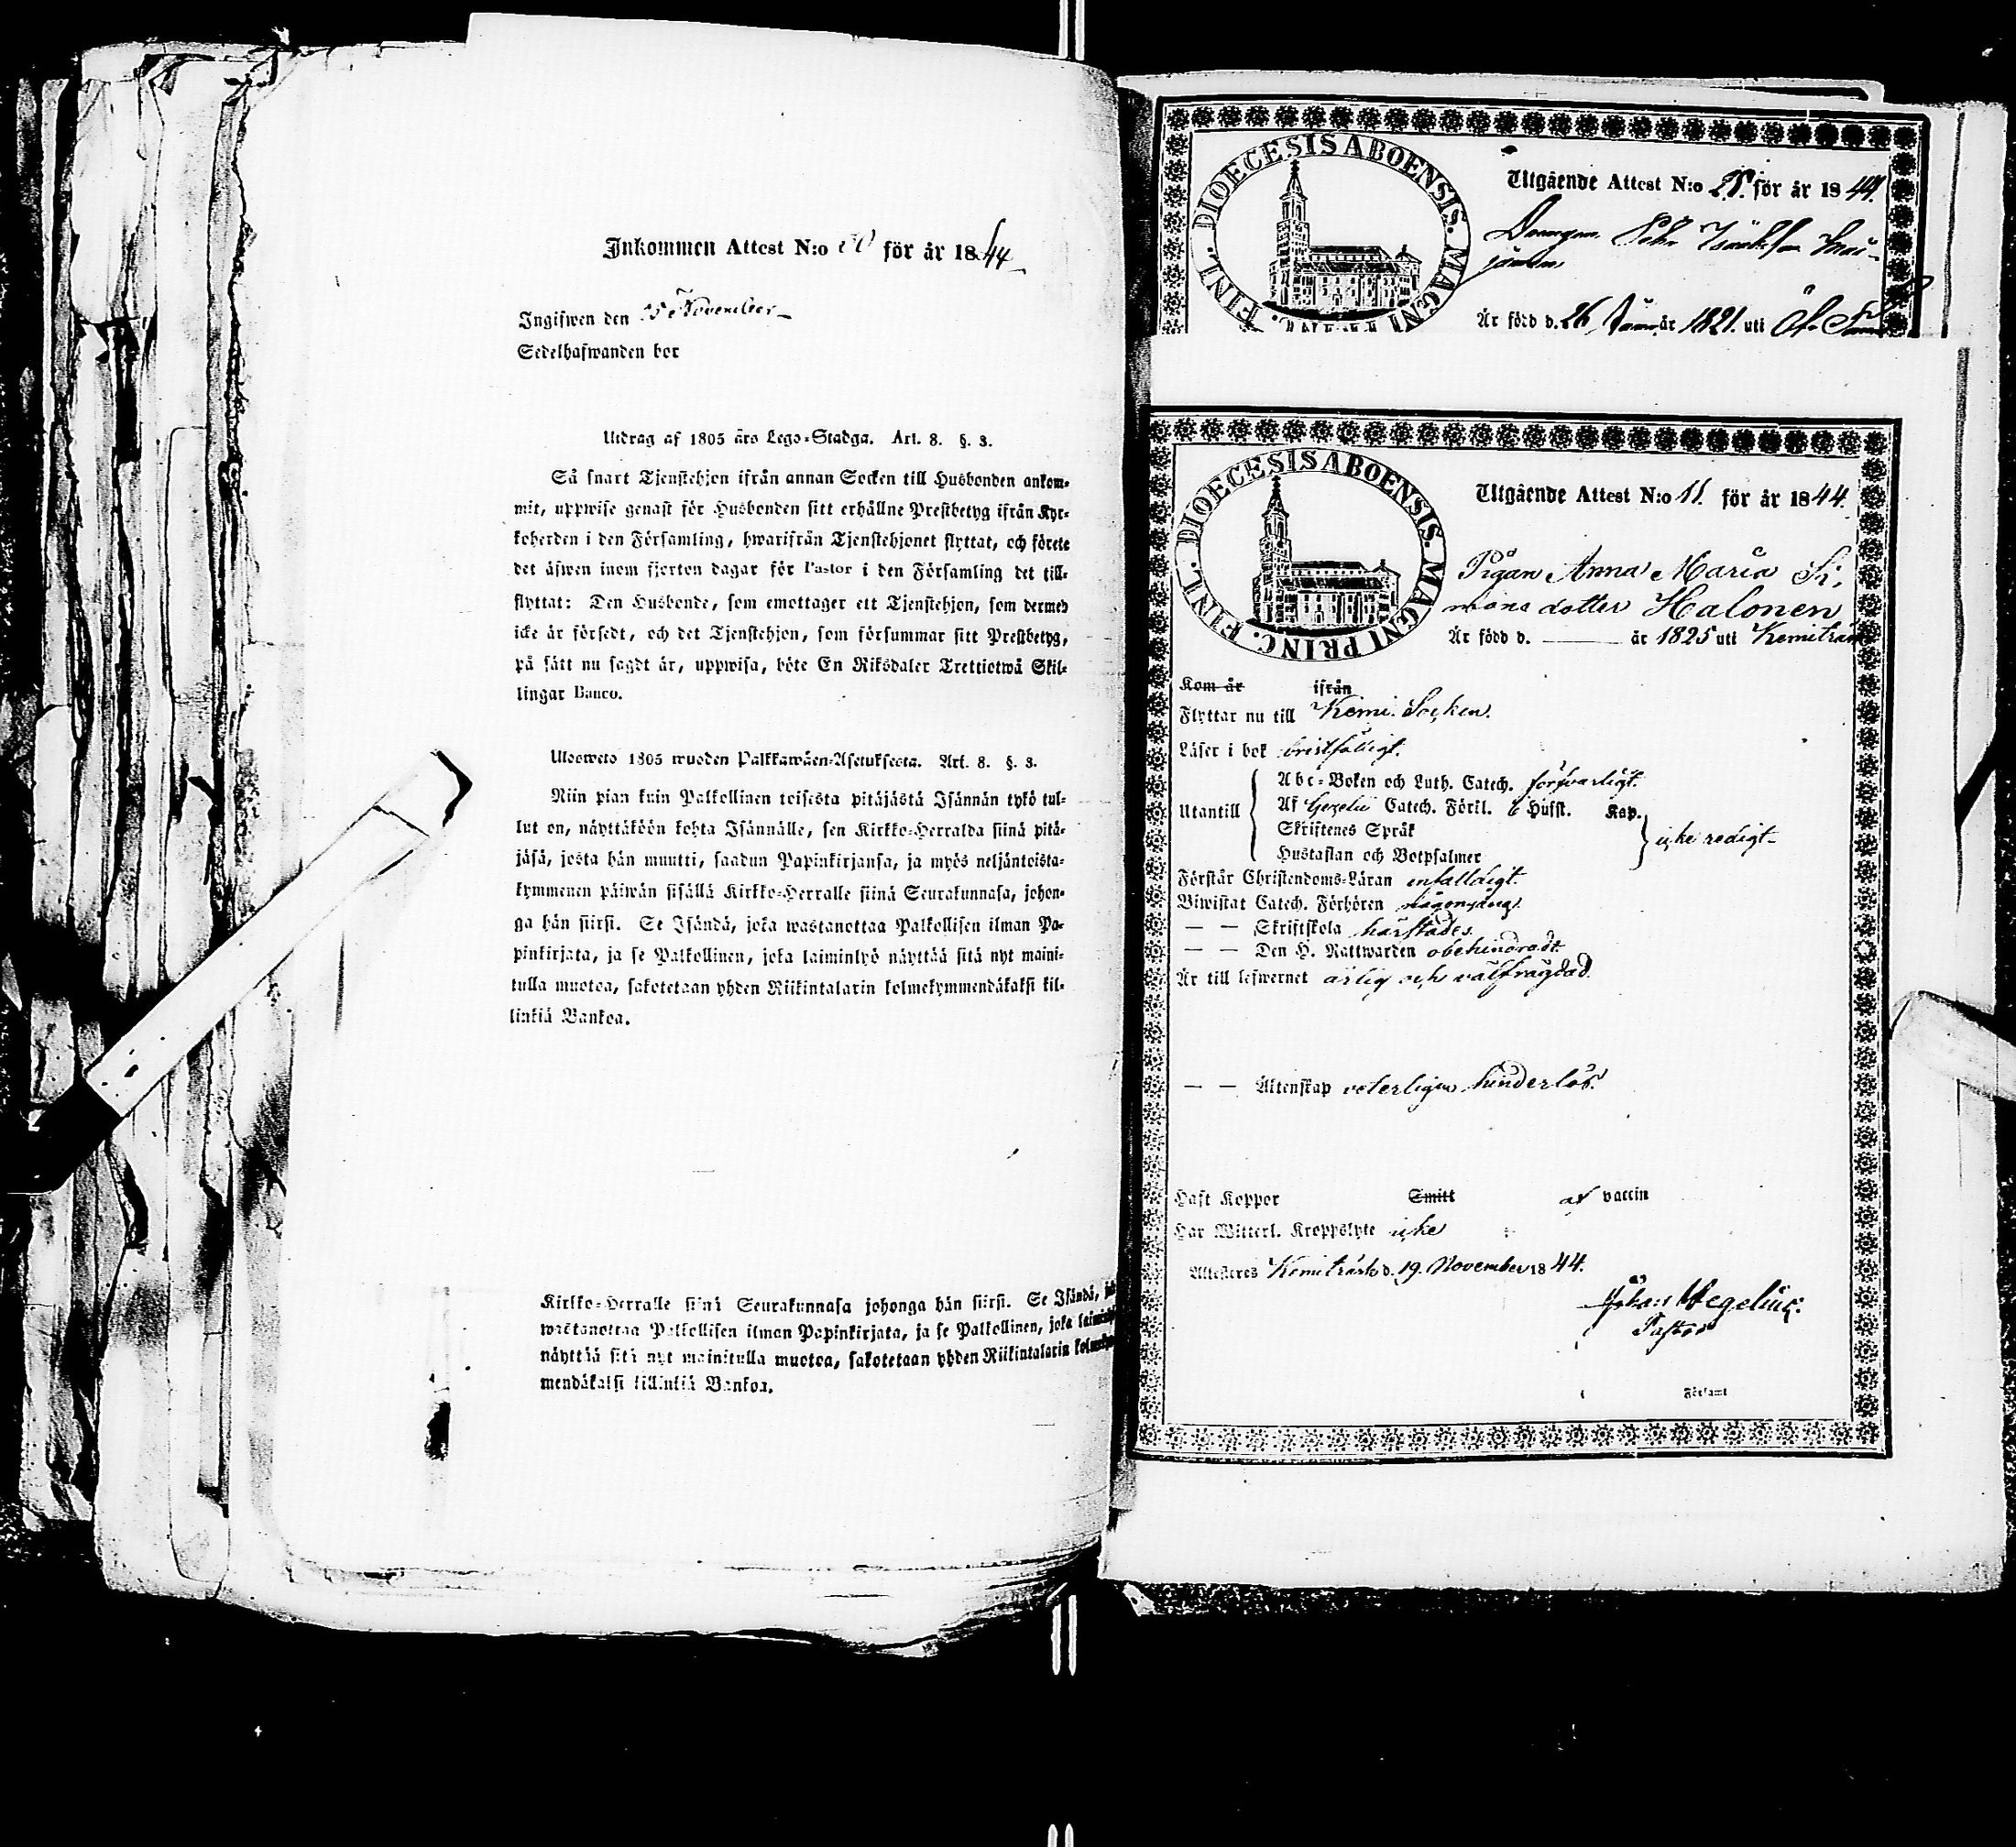 Inkommen Attest N:o för år 1844
Ingifwen den November
Sedelhafwanden bor
Utdrag af 1805 års Lego-Stadga. Art. 8. §. 3.
Så snart Tjenstehjon ifrån annan Socken till Husbonden ankom-
mit, uppwise genast för Husbonden sitt erhållne Prestbetyg ifrån Kyr-
koherden i den Församling, hwarifrån Tjenstehjonet flyttat, och förete
det äfwen inom fjorton dagar för Pastor i den Församling det till-
flyttat: Den Husbonde, som emottager ett Tjenstehjon, som dermed
icke är försedt, och det Tjenstehjon, som försummar sitt Prestbetyg,
på sätt nu sagdt är, uppwisa, böte En Riksdaler Trettiotwå Skil-
lingar Banco.
Ulosweto 1805 wuoden Palkkawäen-Asetuksesta. Art. 8. §. 3.
Niin pian kuin Palkollinen toisesta pitäjästä Isännän tykö tul-
lut on, näyttäköön kohta Isännälle, sen Kirkko-Herralda siinä pitä-
jäsä, josta hän muutti, saadun Papinkirjansa, ja myös neljäntoista-
kymmenen päiwän sisällä Kirkko-Herralle siinä Seurakunnasa, johon-
ga hän siirsi. Se Isändä, joka wastanottaa Palkollisen ilman Pa-
pinkirjata, ja se Palkollinen, joka laiminlyö näyttää sitä nyt maini-
tulla muotoa, sakotetaan yhden Riikintalarin kolmekymmendäkaksi kil-
linkiä Bankoa.
Kirkko-Herralle siinä Seurakunnasa johonga hän siirsi. Se Isändä,
wastanottaa Palkollisen ilman Papinkirjata, ja se Palkollinen, joka
näyttää sitä nyt mainitulla muotoa, sakotetaan yhden Riikintalarin
mendäkaksi killinkiä Bankoa.
DIOECESIS ABOENSIS. MAGNI FINL.
Utgående Attest N:o för år 1844.
Drengen
Är född d. 26 år 1821. uti
DIOECESIS ABOENSIS. MAGNI PRINC. FINL.
Utgående Attest N:o 11. för år 1844.
Pigan Anna Maria Si,
mons dotter Halonen
Är född d. — år 1825 uti Kemiträsk
Kom år ifrån
Flyttar nu till Kemi Socken.
Läser i bok bristfälligt.
Utantill
Abc-Boken och Luth. Catech. försvarligt.
Af Gezelii Catech. Förkl. 6 Hufst. Kap.
Skriftenes Språk
Hustaflan och Botpsalmer
icke redigt
Förstår Christendoms-Läran enfalldigt.
Biwistat Catech. Förhören någongång.
— — Skriftskola härstädes.
— — Den H. Nattwarden obehindradt.
Är till lefwernet ärlig och välfrägdad.
— — Äktenskap veterligen hinderlös.
Haft Koppor Smitt af vaccin
Har Witterl. Kroppslyte icke
Attesteras Kemiträsk d. 19. November 1844.
Johan Wegelius.
Pastor
Församl